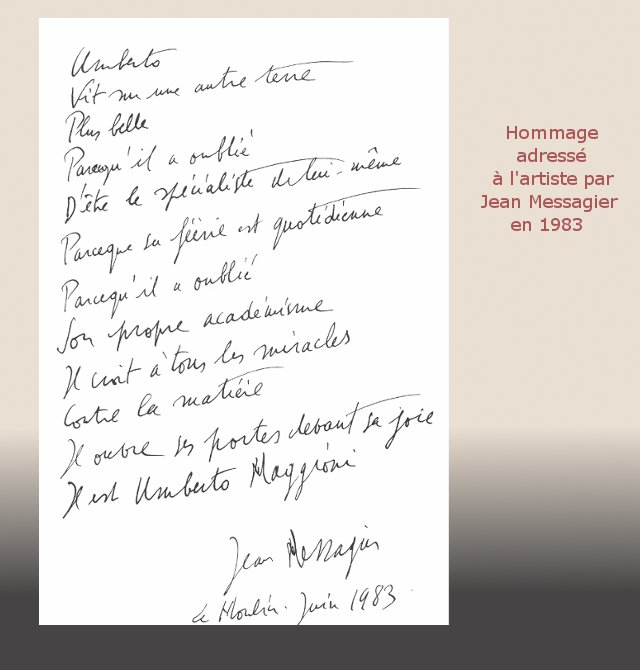 Umberto
Vit sur une autre terre
Plus belle
Parcequ'il a oublié
D'être le spécialiste de lui-même
Parceque sa féérie est quotidiènne
Parcequ'il a oublié
Son propre académisme
Il croit à tous les miracles
Contre la matière
Il ouvre ses portes devant sa joie
Il est Umberto Maggioni
Jean Messagier
Le Moulin. Juin 1983
Hommage
adressé
à l'artiste par
Jean Messagier
en 1983